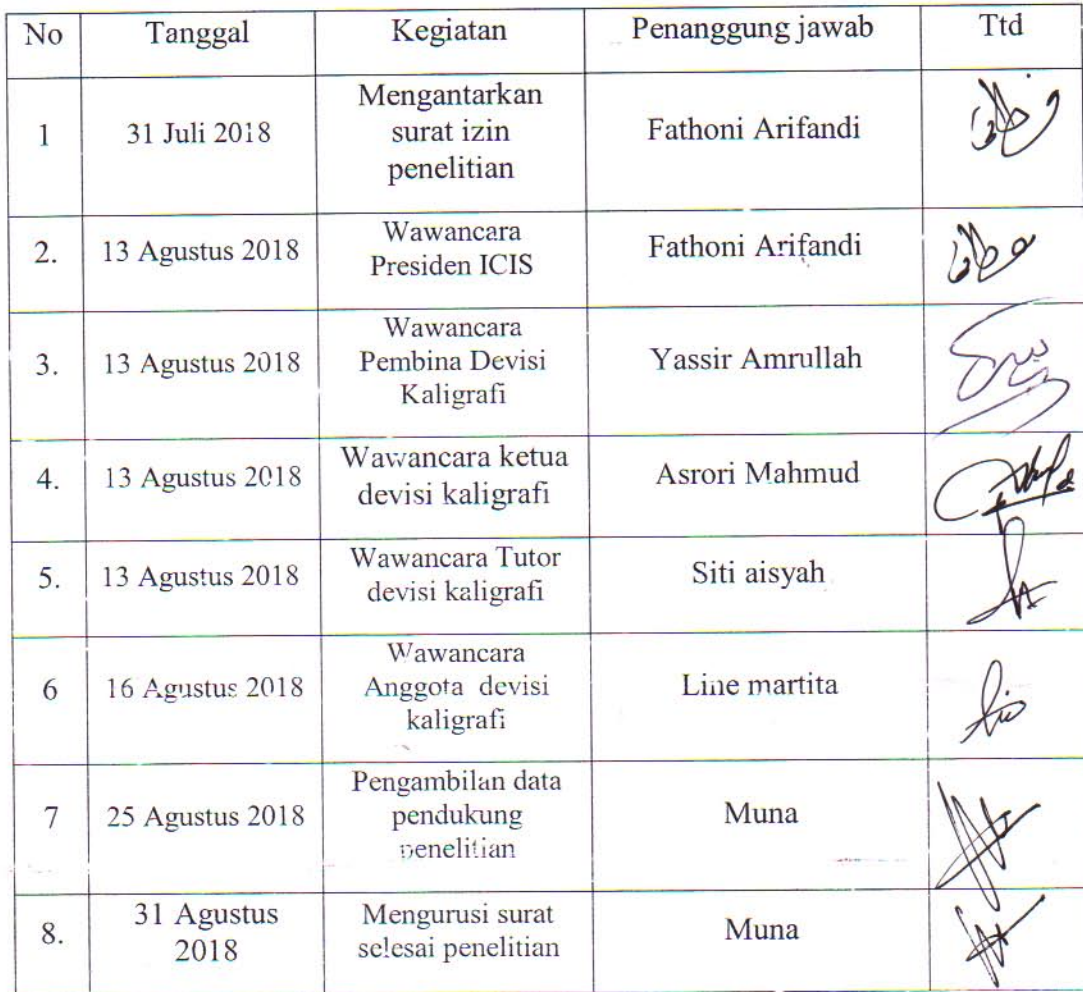 No Tanggal Kegiatan Penanggung jawab Ttd
1 31 Juli 2018 Mengantarkan surat izin penelitian Fathoni Arifandi
2. 13 Agustus 2018 Wawancara Presiden ICIS Fathoni Arifandi
3. 13 Agustus 2018 Wawancara Pembina Devisi Kaligrafi Yassir Amrullah
4. 13 Agustus 2018 Wawancara ketua devisi kaligrafi Asrori Mahmud
5. 13 Agustus 2018 Wawancara Tutor devisi kaligrafi Siti aisyah
6 16 Agustus 2018 Wawancara Anggota devisi kaligrafi Line martita
7 25 Agustus 2018 Pengambilan data pendukung penelitian Muna
8. 31 Agustus 2018 Mengurusi surat selesai penelitian Muna